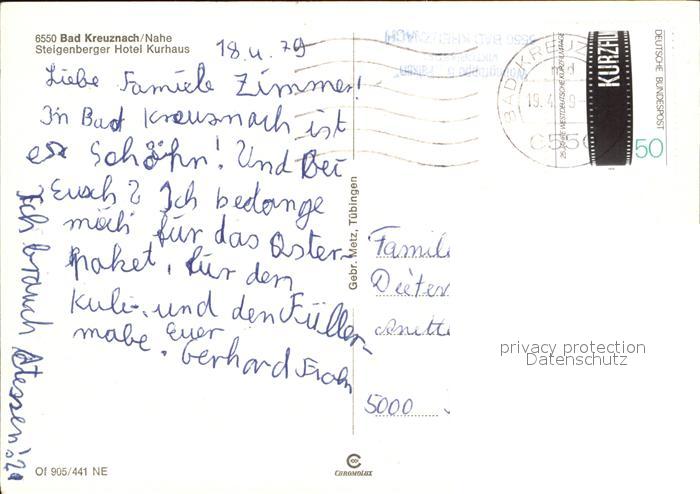 6550 Bad Kreuznach/Nahe
Steigenberger Hotel Kurhaus
18.4.79
Liebe Familie Zimmer!
In Bad Kreusnach ist
es Schöhn! Und Bei
Eusch? Ich bedange
mich für das Oster-
paket, für den
Kuli- und den Füller-
mabe. Euer
Gerhard
Ich brauch
Gebr. Metz, Tübingen
Famili
Dieter
anette
5000
BAD KREUZ
19.4.
655
25 JAHRE WESTDEUTSCHE KURZFILMTAGE
KURZFIL
DEUTSCHE BUNDESPOST
50
privacy protection
Datenschutz
Of 905/441 NE
CHROMOLUX